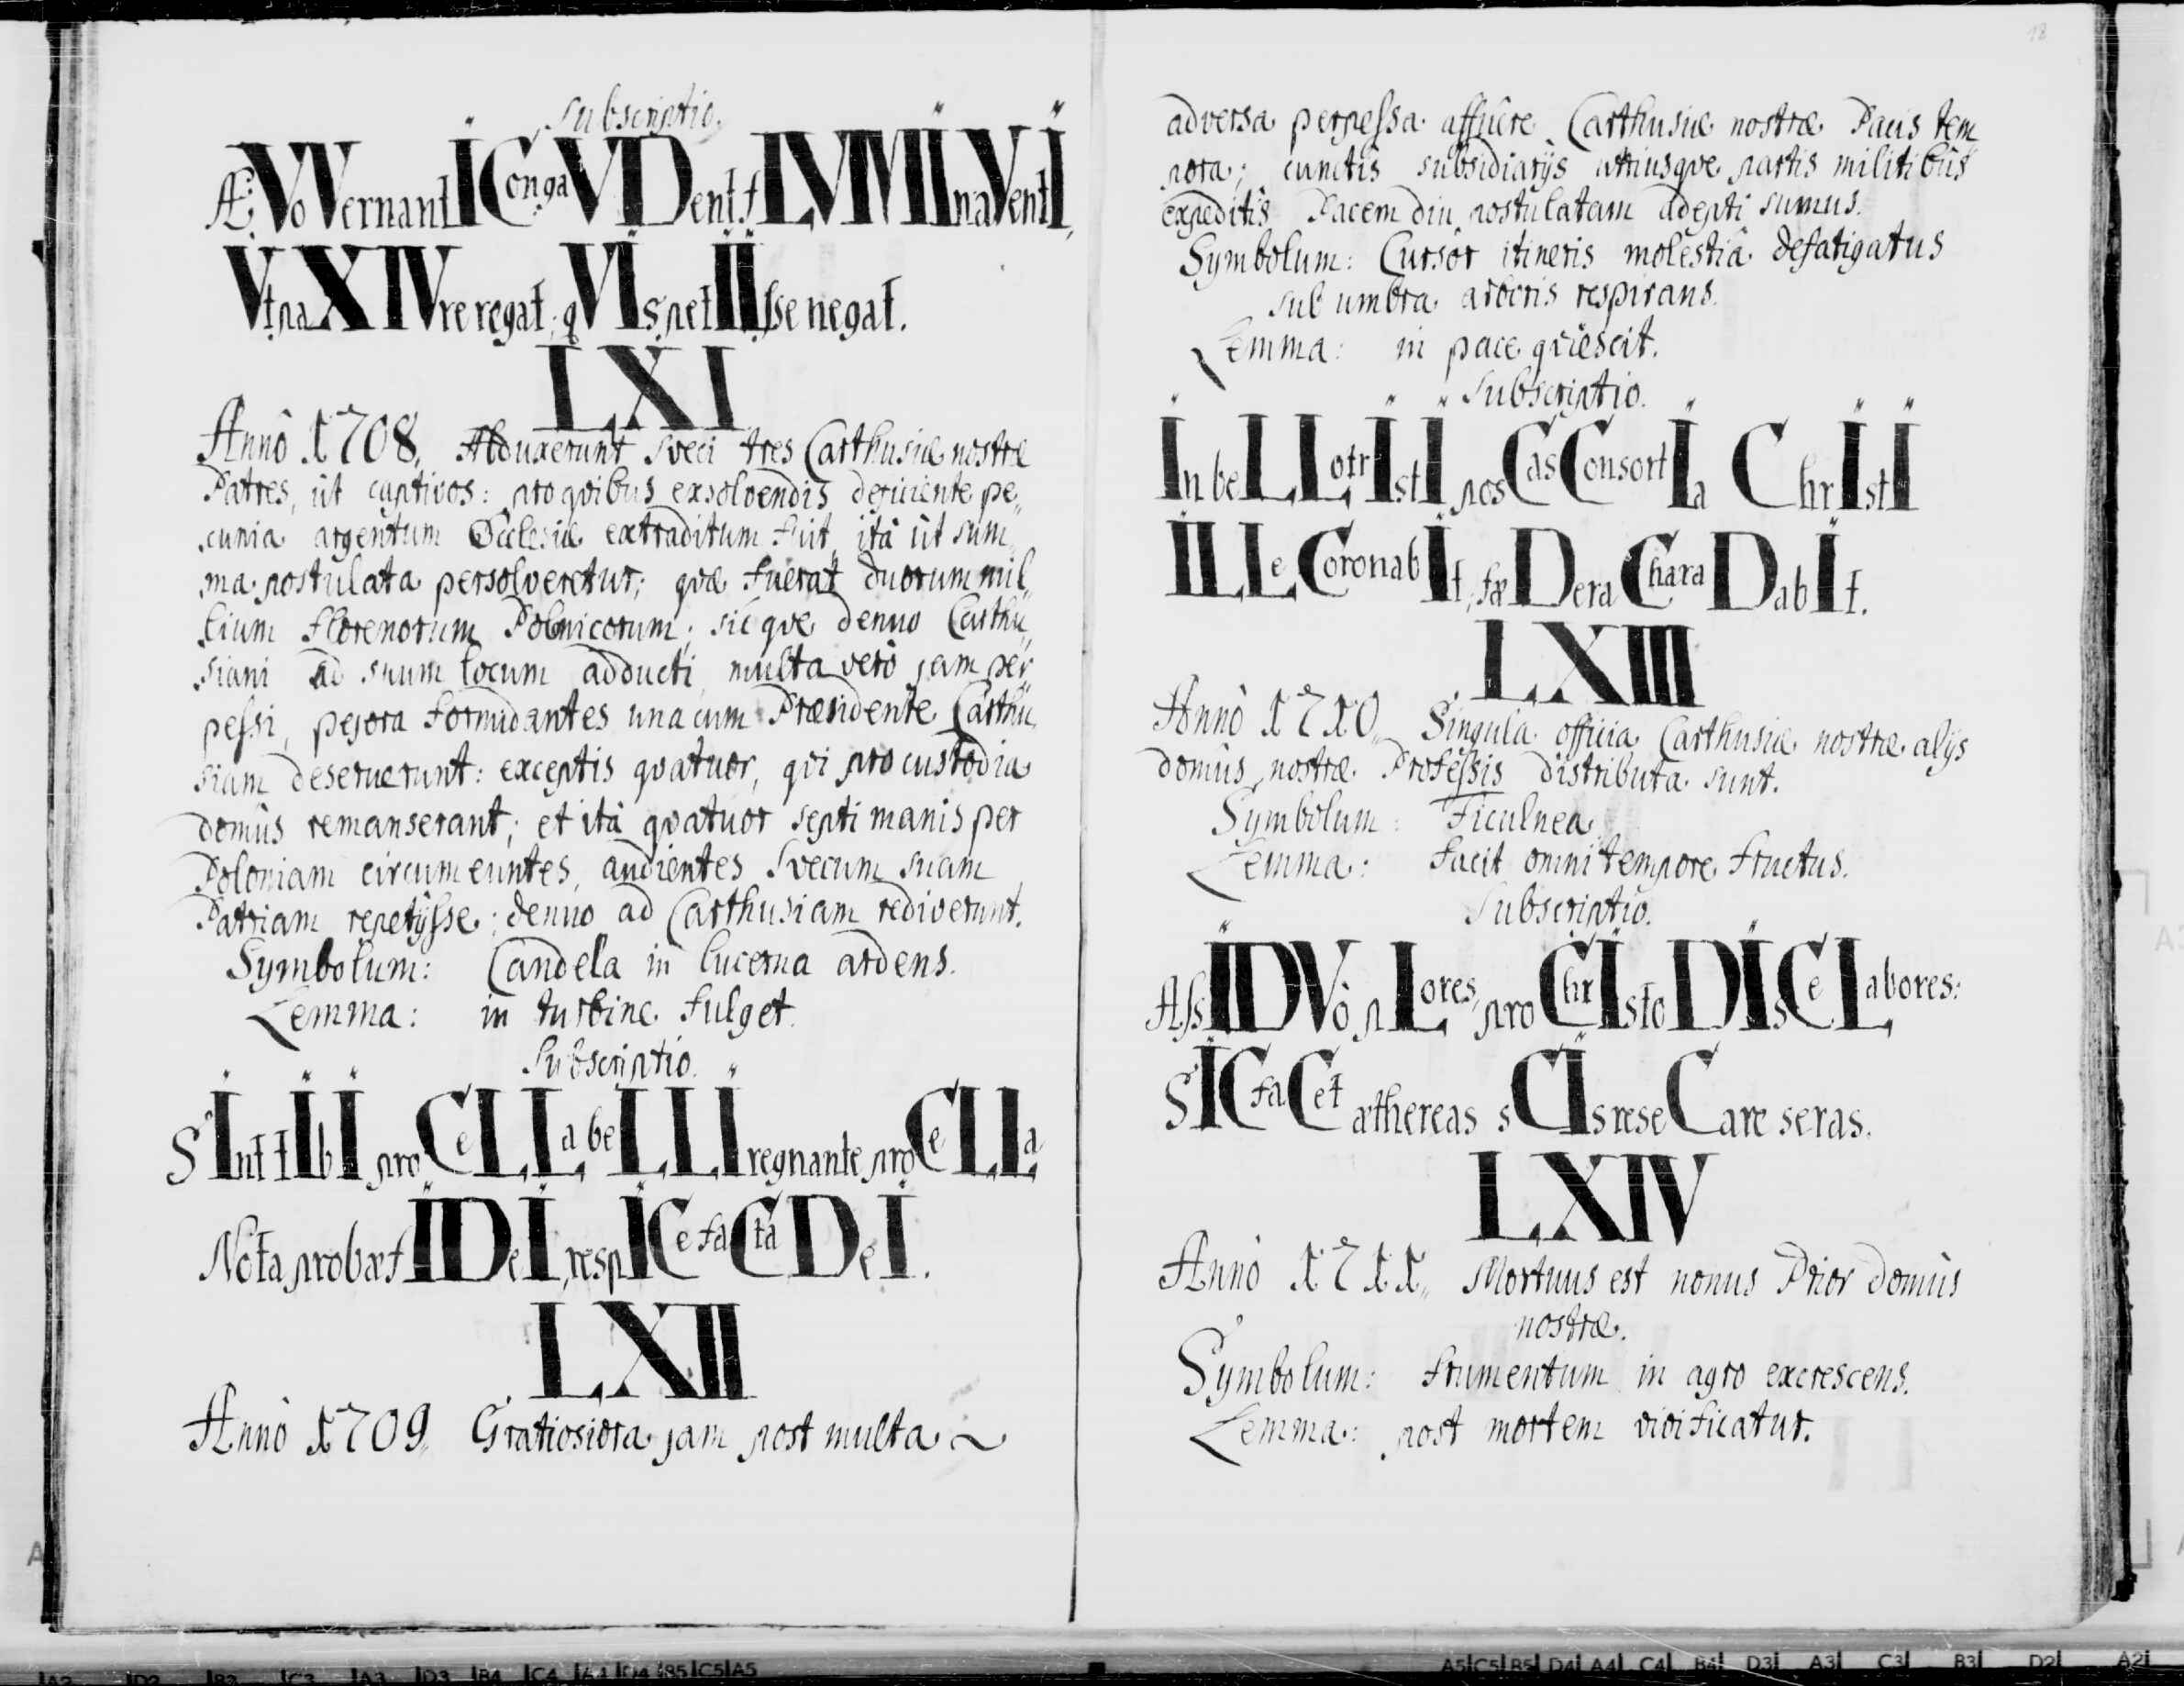 Subscriptio.
Æ: VoVernant ICongaVDent fLVMInaVentI,
Vt paXIVre regat; qVIs, petIIsse negat.
LXI
Annô 1708. Abduxerunt Sveci tres Carthusiæ nostræ
Patres, ût captivos: pro qvibus exsolvendis deficiente pe„
cunia argentum Ecclesiæ extraditum fuit, itâ ût sum„
ma postulata persolveretur; qvæ fuerat duorum mil„
lium florenorum Polonicorum; sicqve denuo Carthu„
siani ad suum locum adducti, multa verò jam per„
pessi, pejora formidantes una cum Præsidente Carthu„
siam deseruerunt: exceptis qvatuor, qvi pro custodia
domûs remanserant; et itâ qvatuor septimanis per
Poloniam circumeuntes, audientes Svecum suam
Patriam repetijsse; denuo ad Carthusiam rediverunt.
Symbolum: Candela in lucerna ardens.
Lemma: in turbine fulget.
Subscriptio.
SInt tIbI proCeLLa beLLI regnante proCeLLa
Nota probæ fIDeI, respICe faCta DeI.
LXII
Annô 1709„ Gratiosiora jam post multa ~
18
adversa perpessa affuere Carthusiæ nostræ Pacis tem„
pora; cunctis subsidiarijs utriusqve partis militibus
expeditis Pacem diu postulatam adepti sumus.
Symbolum: Cursor itineris molestiâ defatigatus
sub umbra arboris respirans.
Lemma: in pace qviescit.
Subscriptio.
In beLLo trIstI, posCas ConsortIa ChrIstI
ILLe CoronabIt, fæDera Chara DabIt.
LXIII
Annô 1710„ Singula officia Carthusiæ nostræ alijs
domûs nostræ Professis distributa sunt.
Symbolum: Ficulnea.
Lemma: facit omni tempore fructus.
Subscriptio.
AssIDVô pLores, pro ChrIsto DIsCe Labores:
SIC faCet æthereas sCIs reseCare seras.
LXIV
Annô 1711„ Mortuus est nonus Prior domûs
nostræ.
Symbolum: frumentum in agro excrescens.
Lemma: post mortem vivificatur.